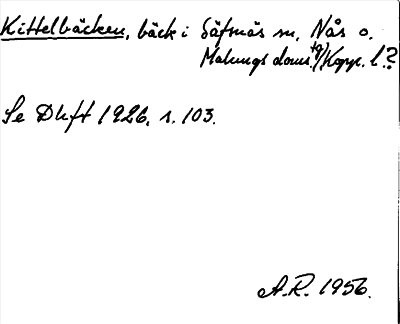 Kittelbäcken, bäck i Säfsnäs sn, Nås o.
Malungs doms. tg, Kopp. l.?
Se DHft 1926, s. 103.
A.R. 1956.